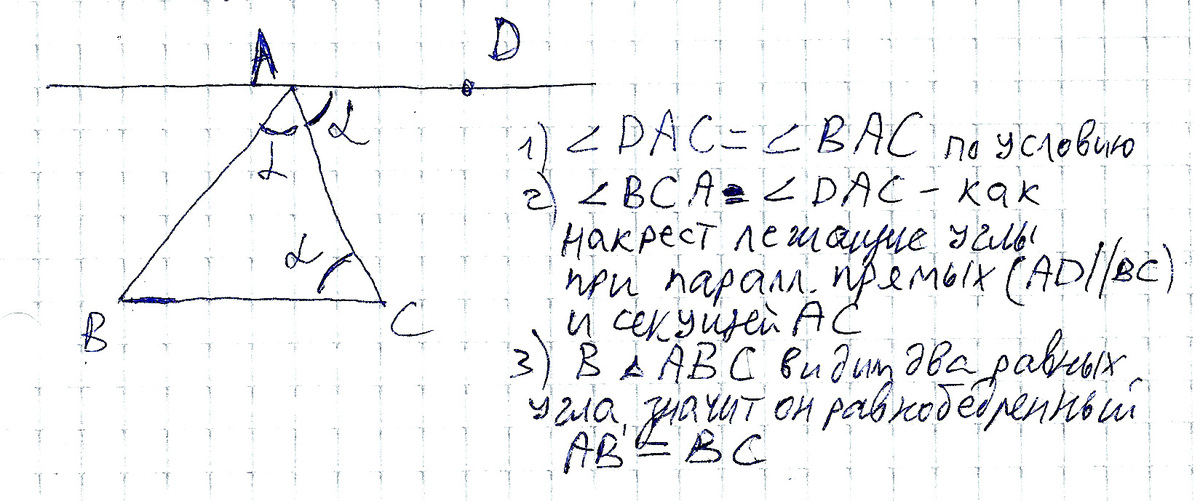 A
D
α
α
α
B
C
1) ∠ DAC = ∠ BAC по условию
2) ∠ BCA = ∠ DAC - как
накрест лежащие углы
при паралл. прямых (AD//BC)
и секущей AC
3) В △ ABC видим два равных
угла, значит он равнобедренный
AB = BC